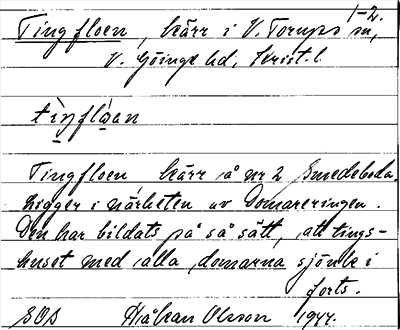 1-2.
Tingfloen, kärr i V. Torups sn,
V. Göinge hd, Krist. l.
tìŋflóan
Tingfloen kärr å nr 2 Smedeboda,
ligger i närheten av Domareringen.
Den har bildats på så sätt, att tings-
huset med alla domarna sjönk i
forts.
SOS Håkan Olsson 1944.